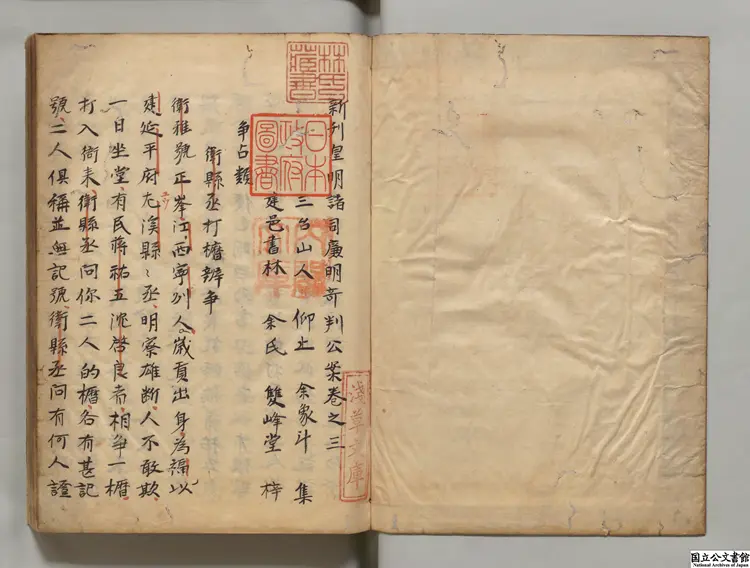 新刊皇明諸司廉明竒判公案卷之三
三台山人　仰止　余象斗　集
建邑書林　余氏　雙峰堂　梓
争占類
衛縣丞打櫃辨争
衛推號正峯江西寧列人歲貢出身為福以
建延平府尤溪縣〻丞明察雄断人不敢欺
一日坐堂有民蒋祐五沈啓良者相争一櫃
打入衙来衛縣丞問你二人的櫃各有甚記
號二人俱稱並無記號衛縣丞問有何人證
林氏藏書
日本政府圖書
淺草文庫
国立公文書館
National Archives of Japan